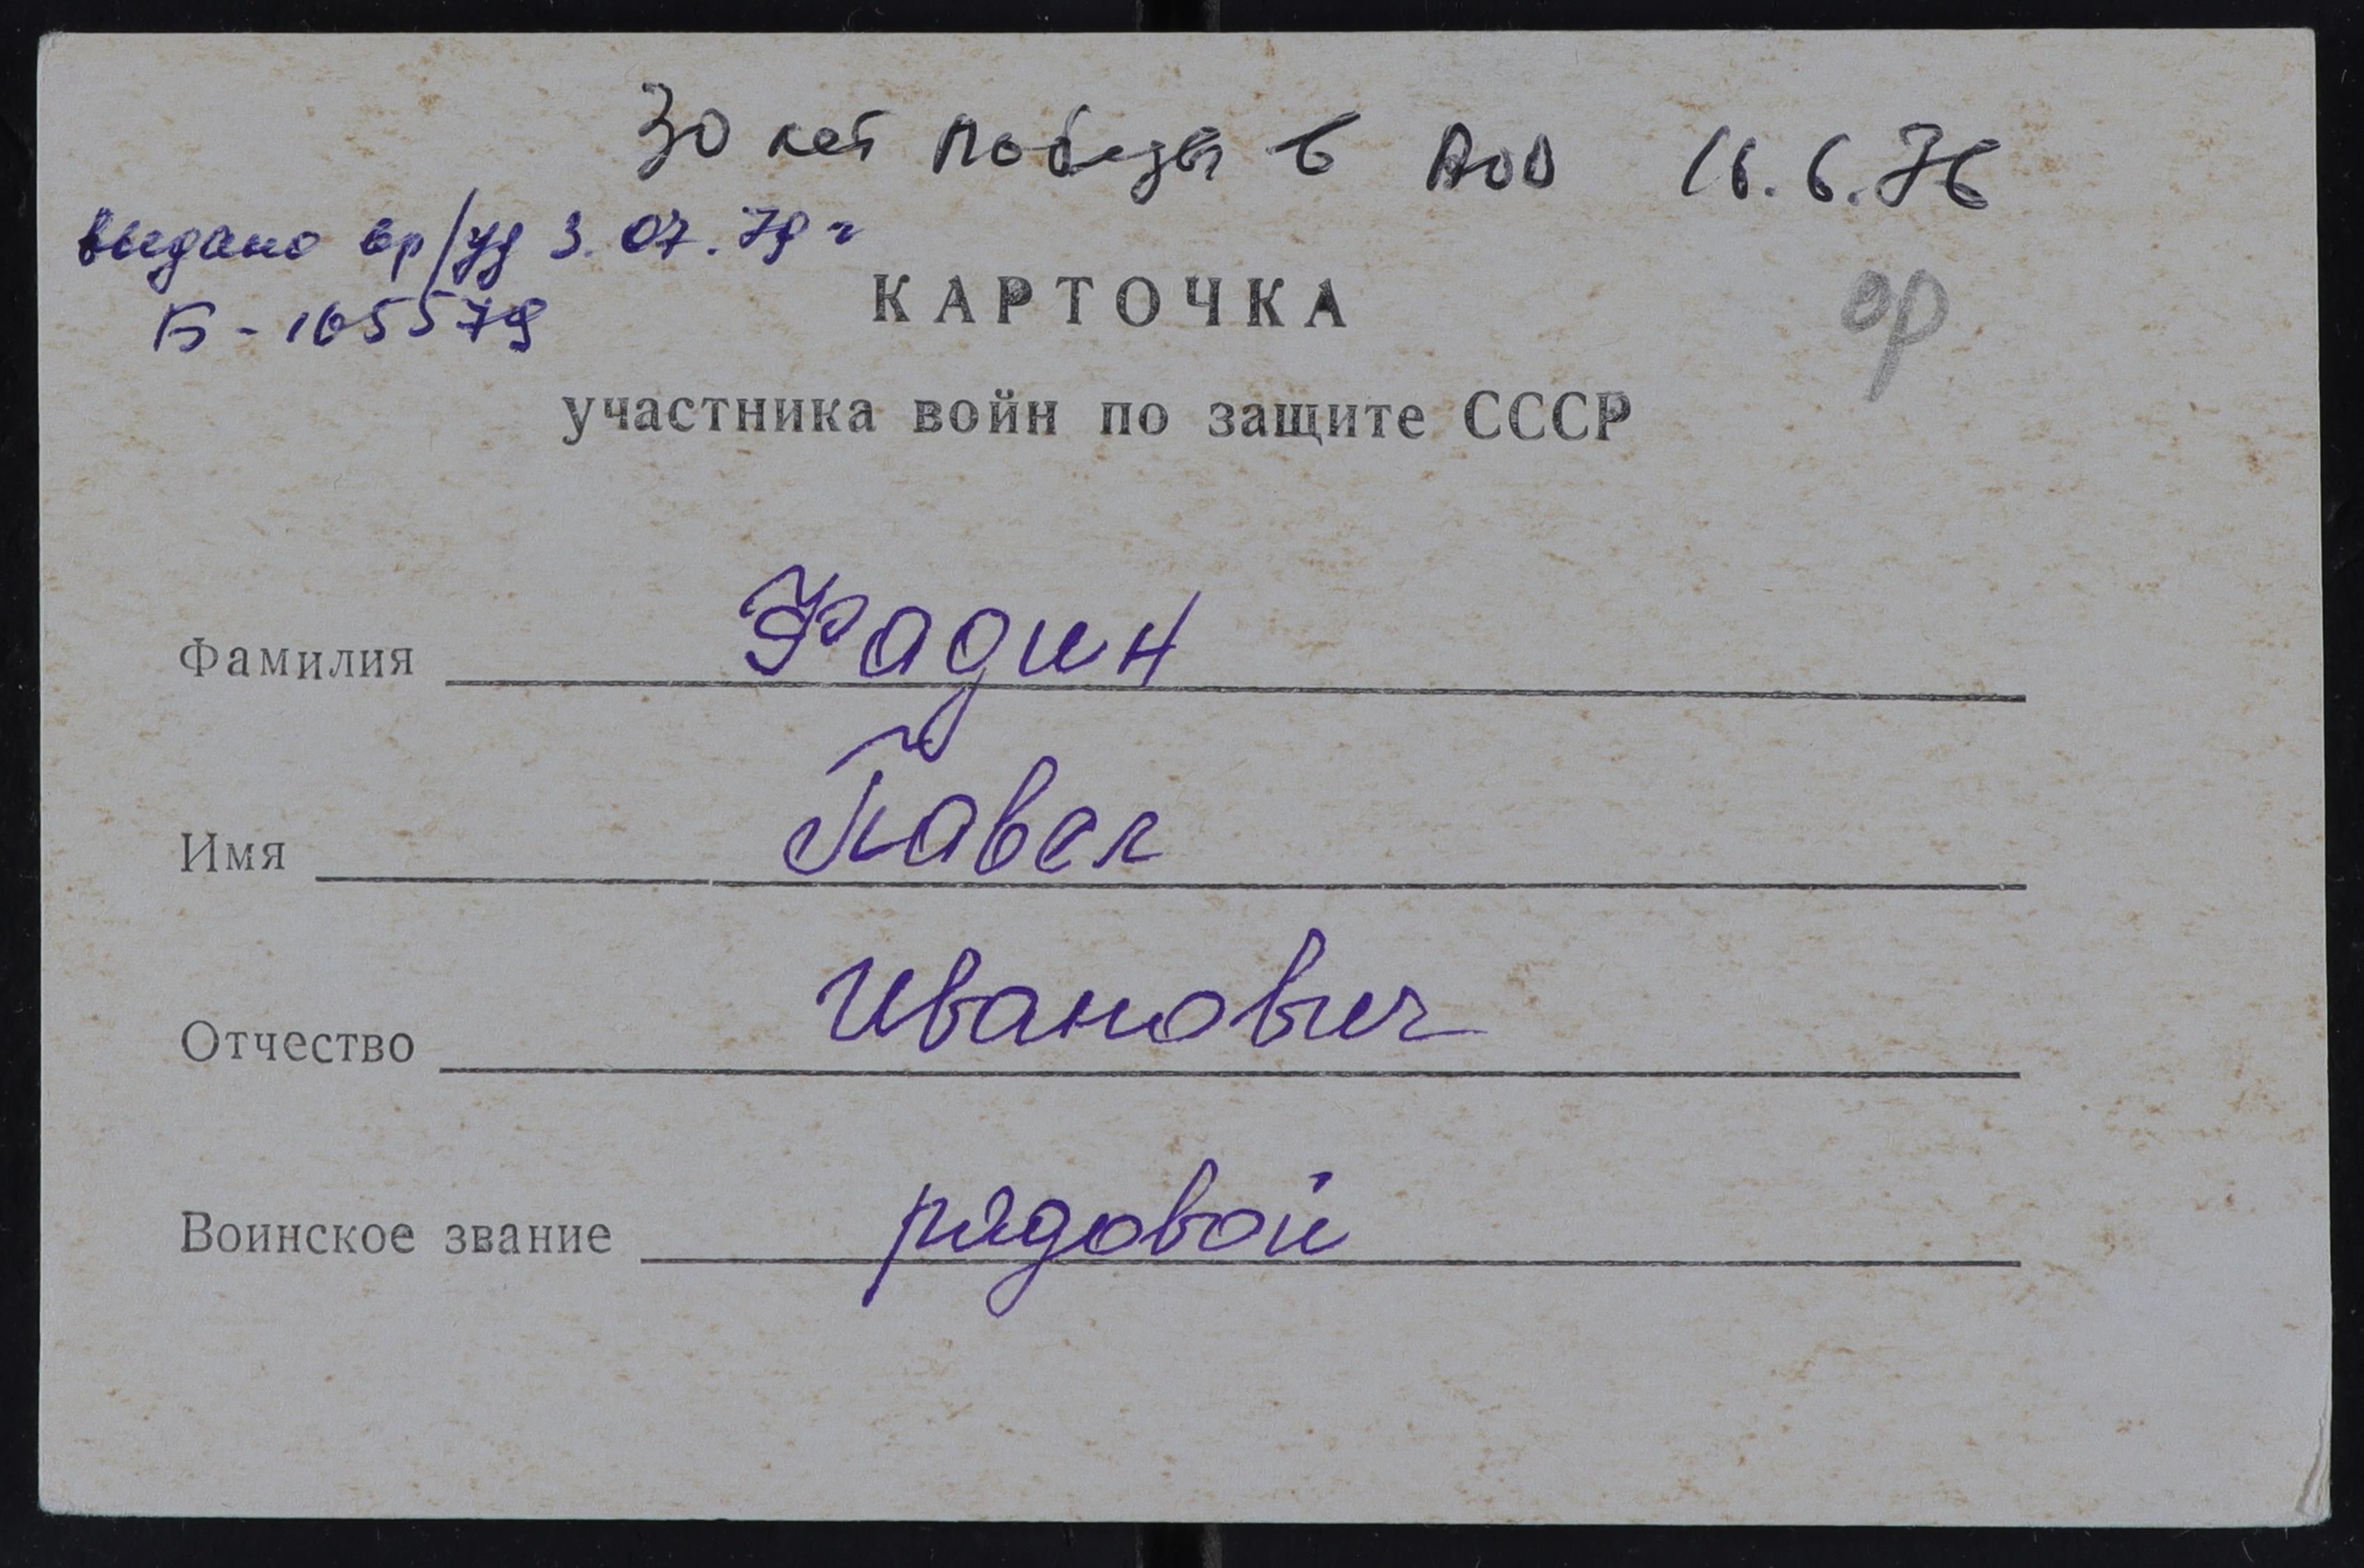 30 лет Победы в ВОВ 16.6.76
выдано вр/уд 3.07.79 г
Б-165579
КАРТОЧКА
ор
участника войн по защите СССР
Фамилия Фадин
Имя Павел
Отчество Иванович
Воинское звание рядовой